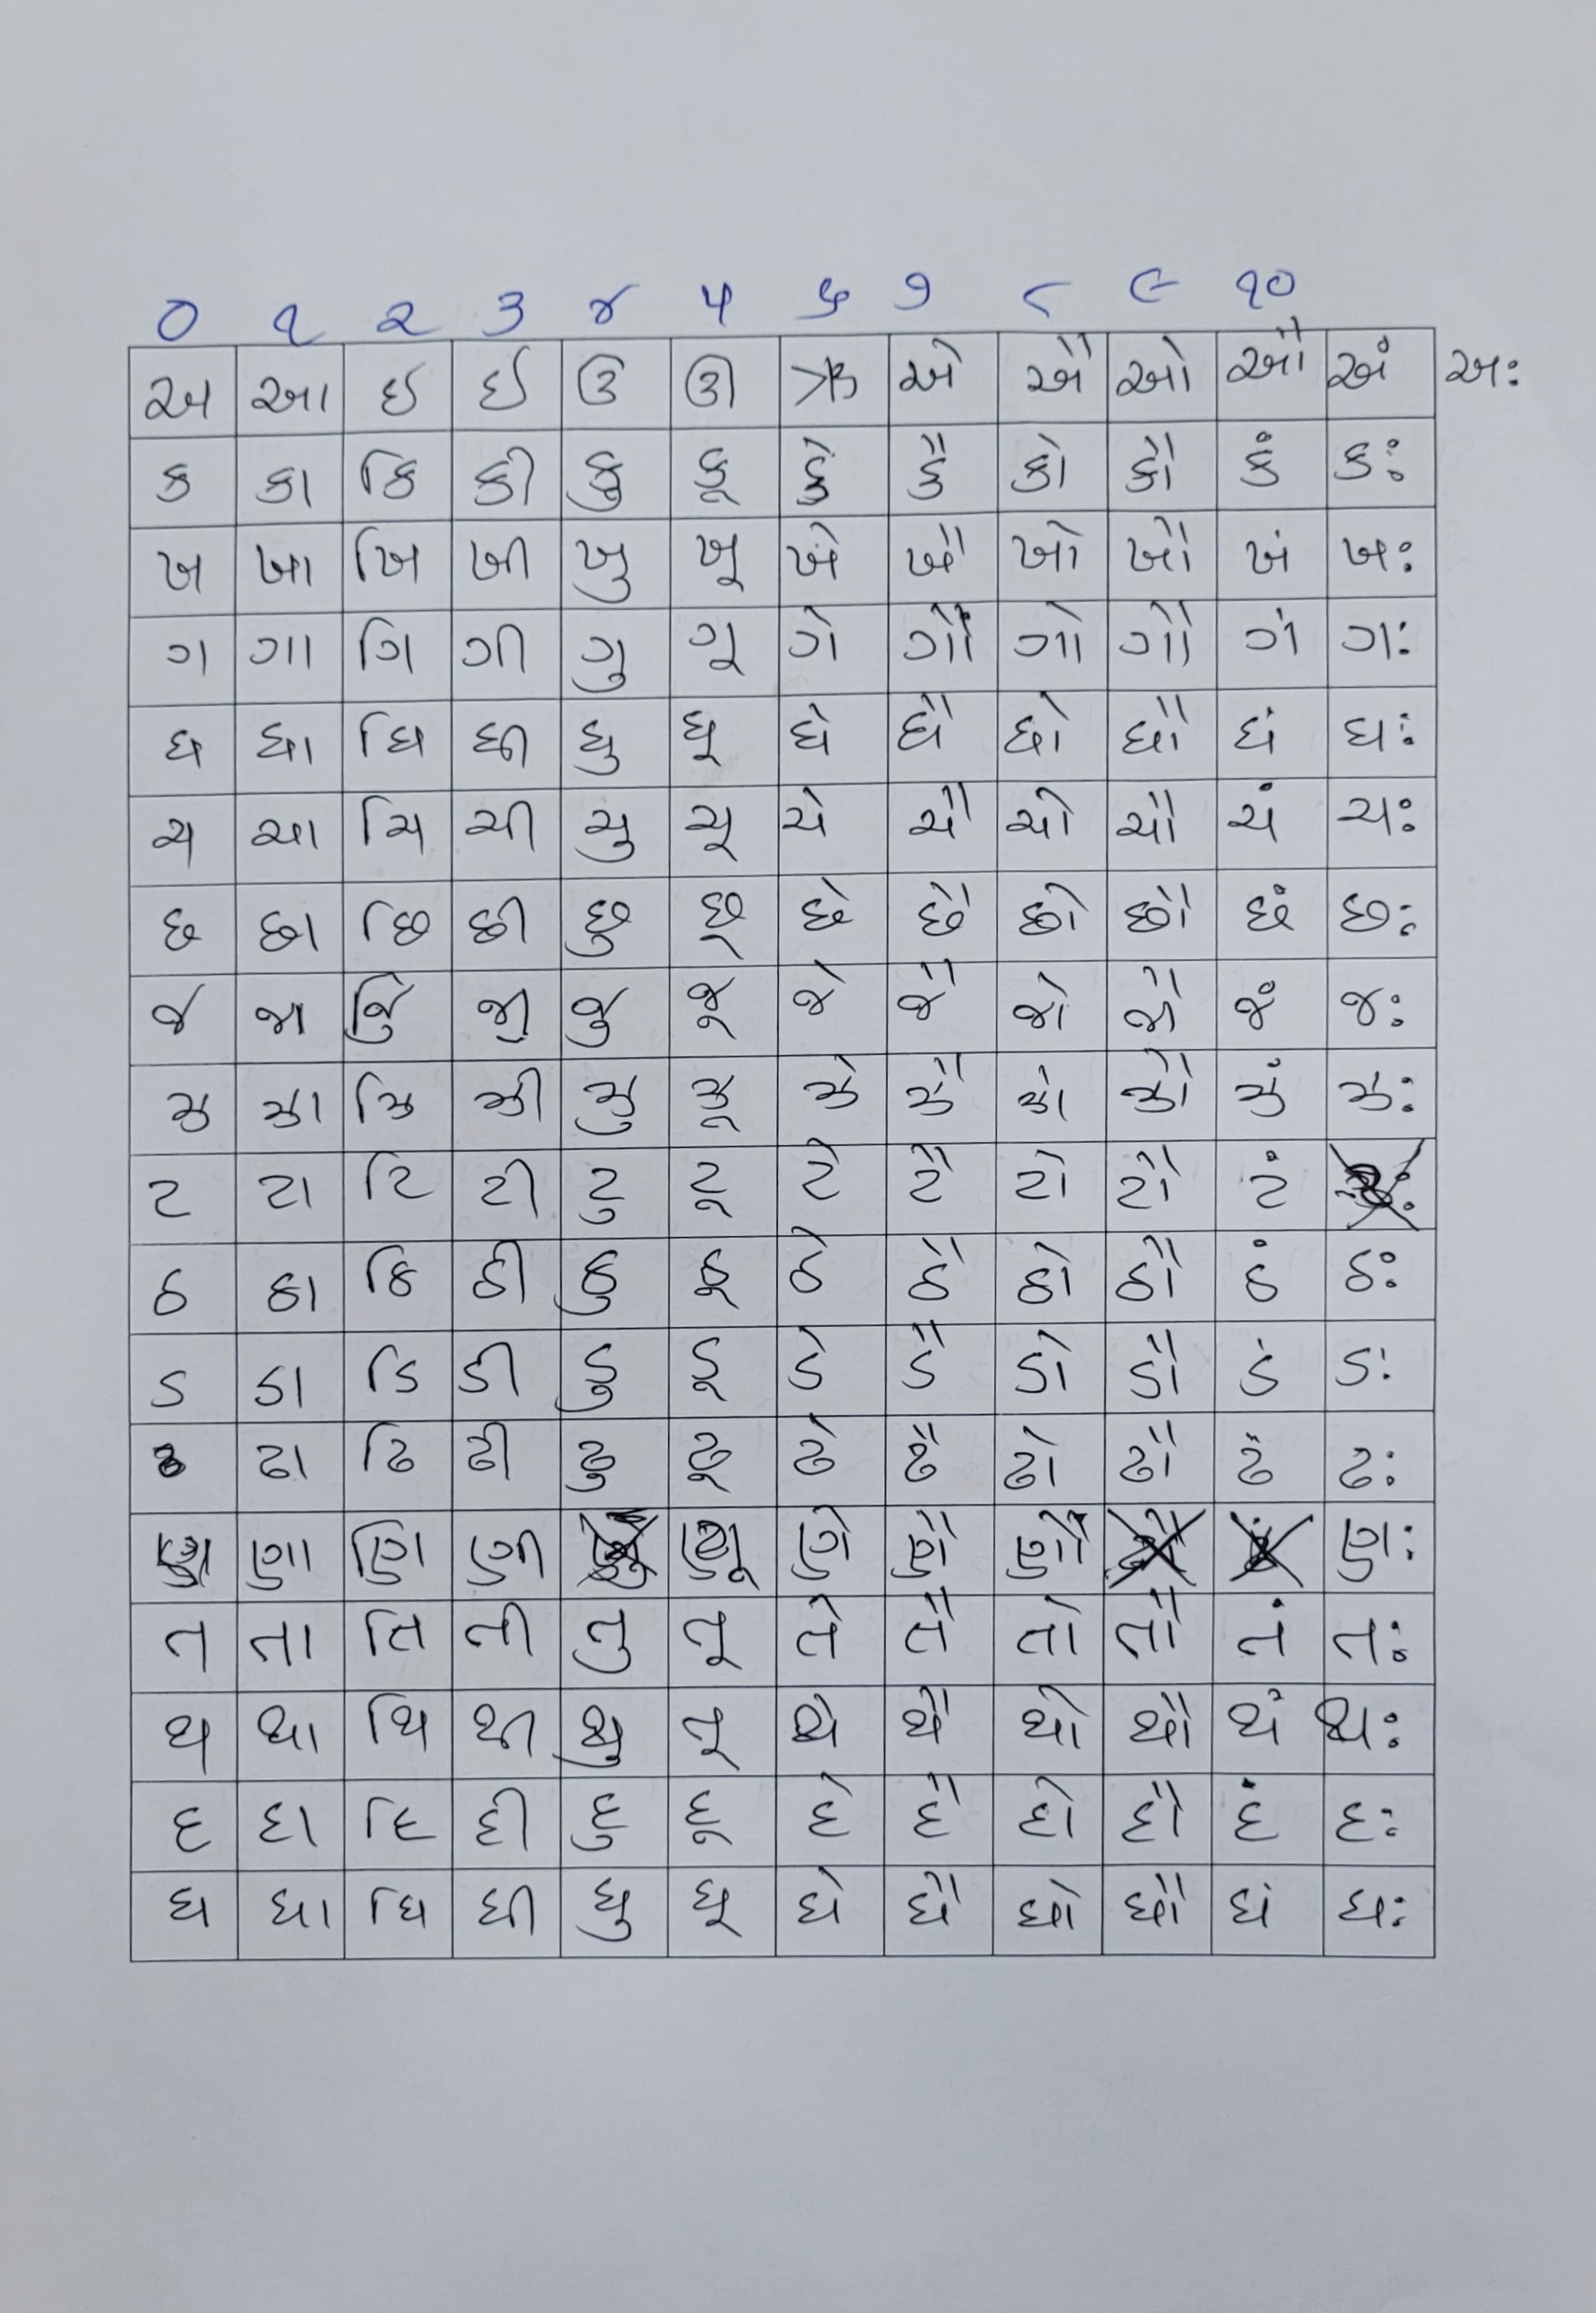 ૦ ૧ ૨ ૩ ૪ ૫ ૬ ૭ ૮ ૯ ૧૦
અ આ ઇ ઈ ઉ ઊ ઋ એ ઐ ઓ ઔ અં અઃ
ક કા કિ કી કુ કૂ કે કૈ કો કૌ કં કઃ
ખ ખા ખિ ખી ખુ ખૂ ખે ખૈ ખો ખૌ ખં ખઃ
ગ ગા ગિ ગી ગુ ગૂ ગે ગૌ ગો ગૌ ગં ગઃ
ઘ ઘા ઘિ ઘી ઘુ ઘૂ ઘે ઘૈ ઘો ઘૌ ઘં ઘઃ
ચ ચા ચિ ચી ચુ ચૂ ચે ચૈ ચો ચૌ ચં ચઃ
છ છા છિ છી છુ છૂ છે છૈ છો છૌ છં છઃ
જ જા જિ જી જુ જૂ જે જૈ જો જૌ જં જઃ
ઝ ઝા ઝિ ઝી ઝુ ઝૂ ઝે ઝૈ ઝો ઝૌ ઝં ઝઃ
ટ ટા ટિ ટી ટુ ટૂ ટે ટૈ ટો ટૌ ટં
ઠ ઠા ઠિ ઠી ઠુ ઠૂ ઠે ઠૈ ઠો ઠૌ ઠં ઠઃ
ડ ડા ડિ ડી ડુ ડૂ ડે ડૈ ડો ડૌ ડં ડઃ
ઢ ઢા ઢિ ઢી ઢુ ઢૂ ઢે ઢૈ ઢો ઢૌ ઢં ઢઃ
ણ ણા ણિ ણી ણૂ ણે ણૈ ણૌ ણઃ
ત તા તિ તી તુ તૂ તે તૈ તો તૌ તં તઃ
થ થા થિ થી થુ તૂ થે થૈ થો થૌ થં થઃ
દ દા દિ દી દુ દૂ દે દૈ દો દૌ દં દઃ
ધ ધા ધિ ધી ધુ ધૂ ધે ધૈ ધો ધૌ ધં ધઃ